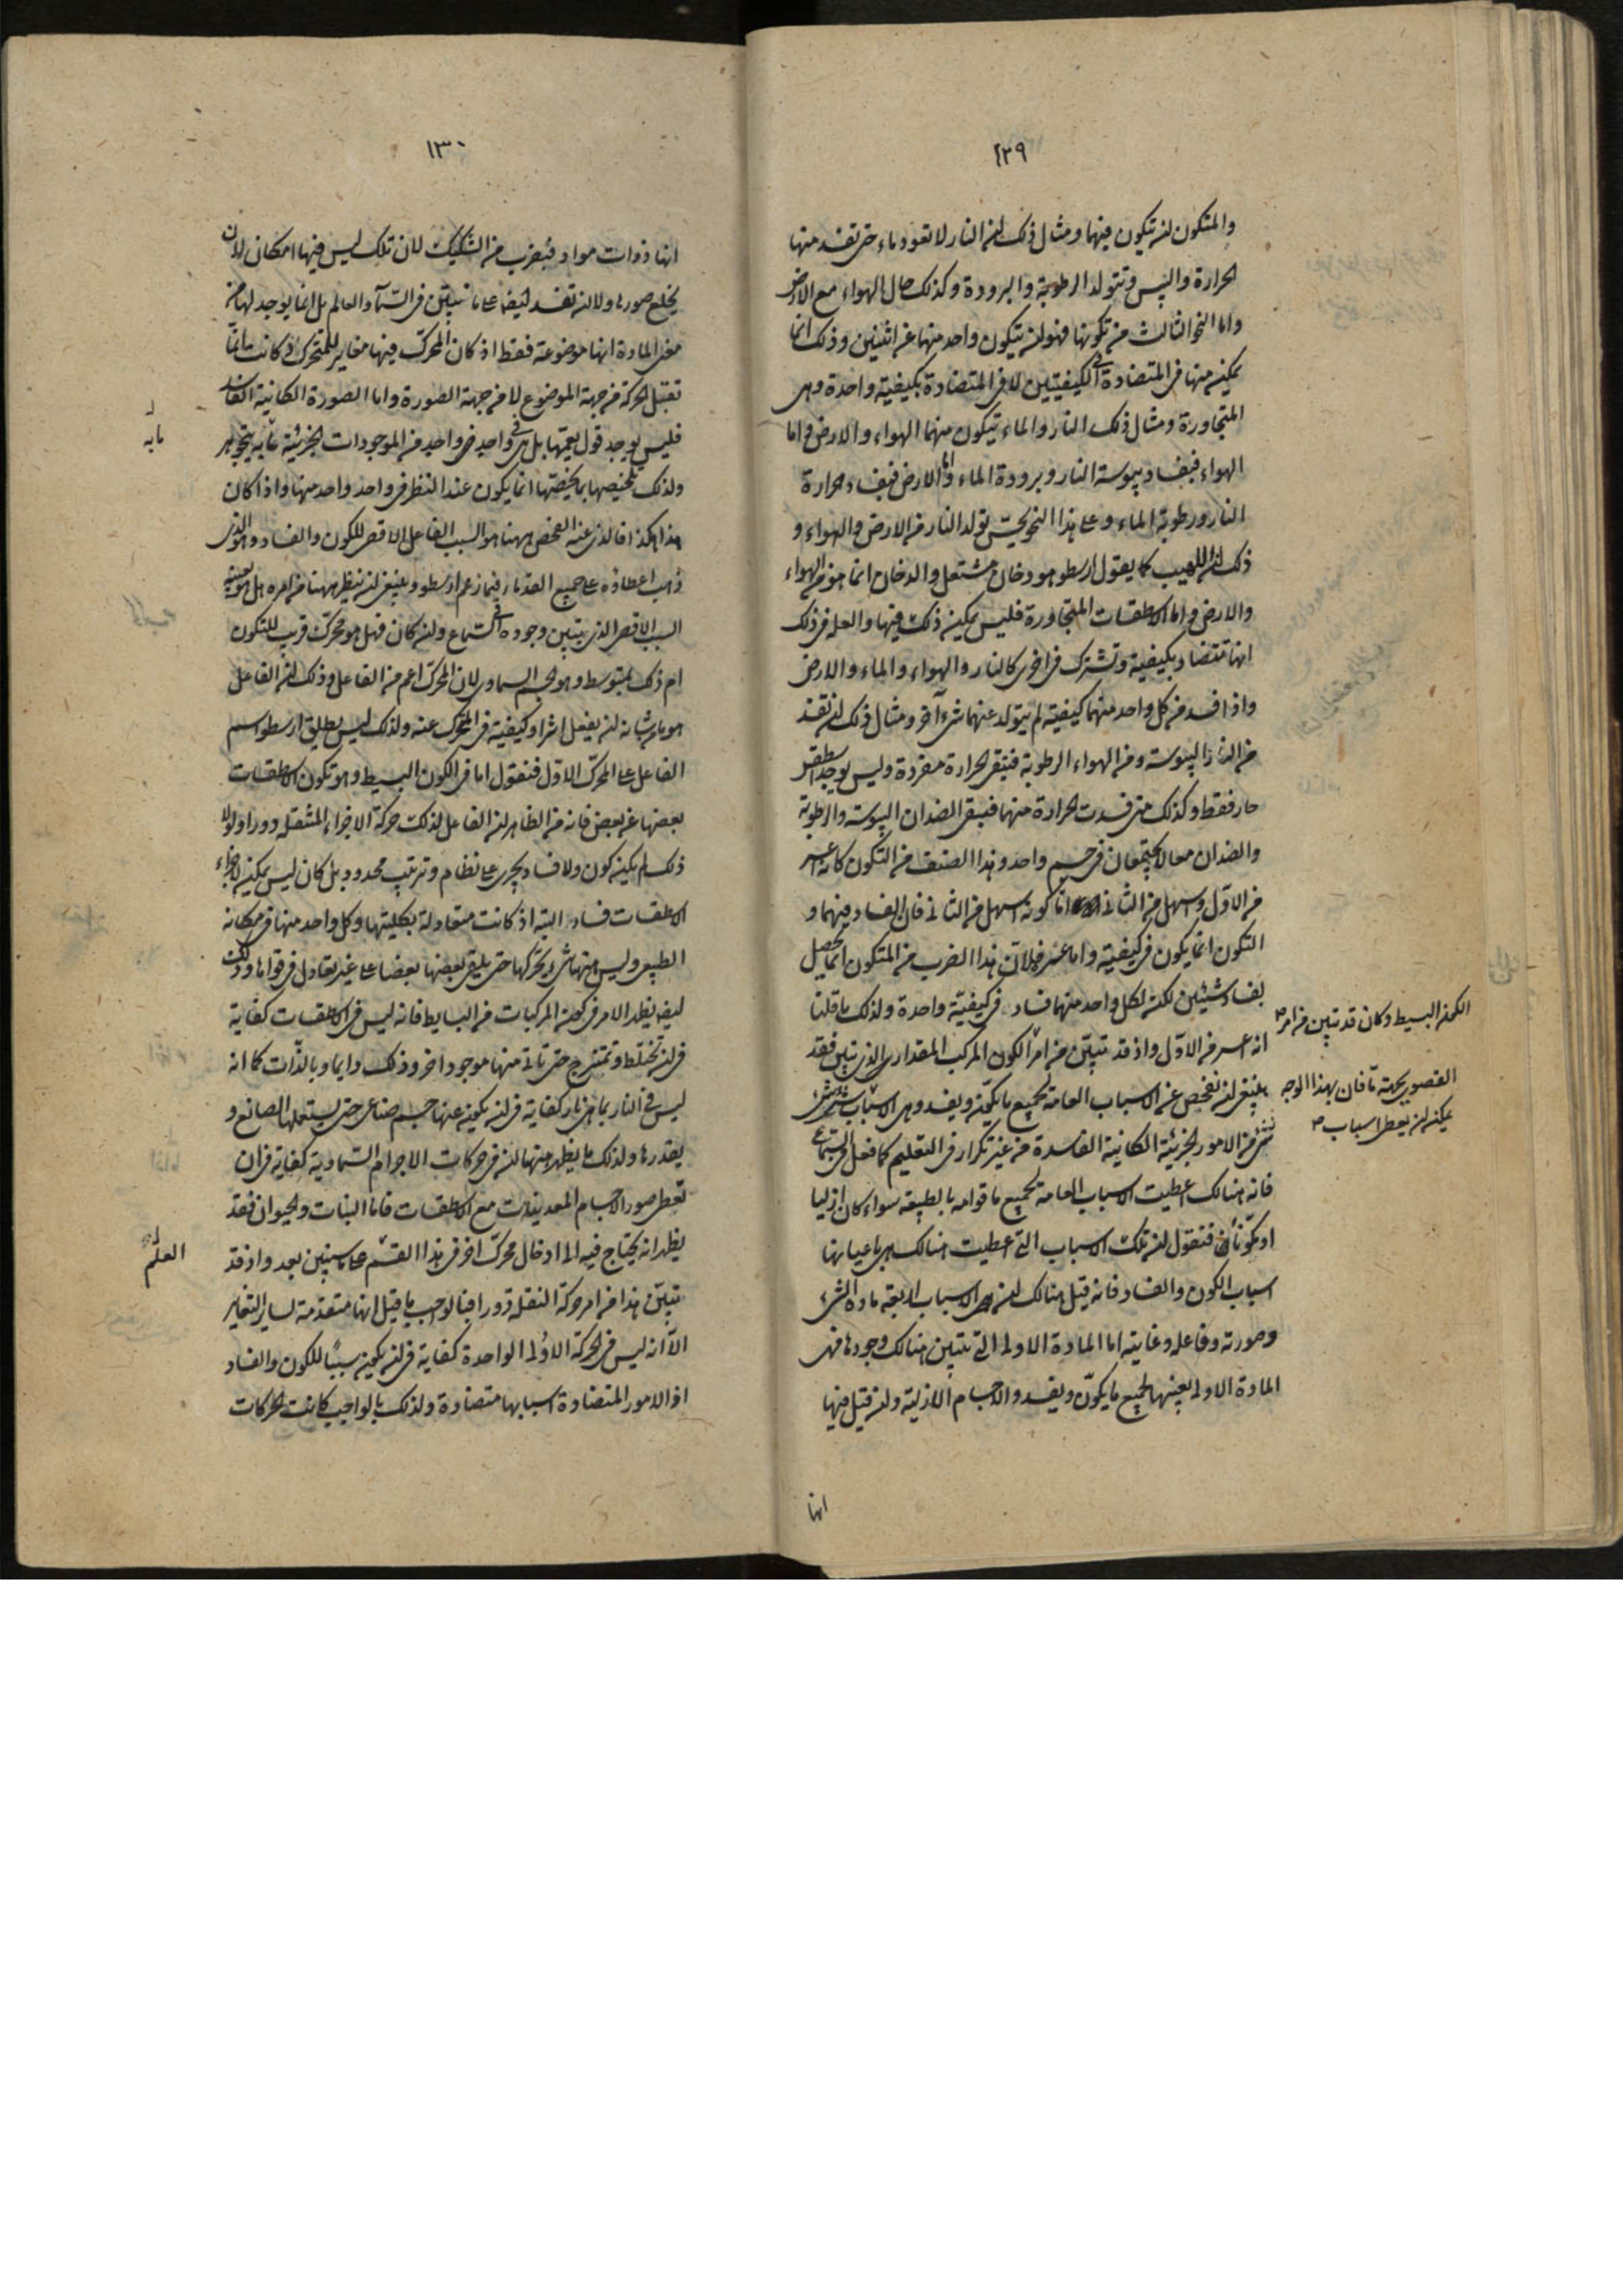 ١٢٩
والمتكون لن تكون فيها ومثال ذلك ان النار لا تعود ماء حتى تفسد منها
الحرارة واليبس وتتولد الرطوبة والبرودة وكذلك حال الهواء مع الارض
واما النحو الثالث من تكونها فهو ان يتكون واحد منها عن اثنين وذلك انما
يمكن منها في المتضادة في الكيفيتين لا في المتضادة بكيفية واحدة وهي
المتجاورة ومثال ذلك النار والماء يتكون منهما الهواء والارض اما
الهواء فبفساد يبوسة النار وبرودة الماء واما الارض فبفساد حرارة
النار ورطوبة الماء وعلى هذا النحو يحس تولد النار من الارض والهواء و
ذلك ان اللهيب كما يقول ارسطو هو دخان مشتعل والدخان انما هو من الهواء
والارض واما الاسطقسات المتجاورة فليس يمكن ذلك فيها والعلة في ذلك
انها تتضاد بكيفية وتشترك في اخرى كالنار والهواء والماء والارض
واذا فسد من كل واحد منهما كيفيته لم يتولد عنهما شيء آخر ومثال ذلك ان تفسد
من النار اليبوسة ومن الهواء الرطوبة فتبقى الحرارة مفردة وليس يوجد اسطقس
حار فقط وكذلك متى فسدت الحرارة منهما فتبقى الضدان اليبوسة والرطوبة
والضدان معا لا يجتمعان في جسم واحد وهذا الصنف من التكون كانه اعسر
من الاول واسهل من الثاني اما كونه اسهل من الثاني فان الفساد فيهما و
التكون انما يكون في كيفية واما عسره فلان هذا الضرب من المتكون انما يحصل
بفساد شيئين لكن لكل واحد منهما فساد في كيفية واحدة ولذلك ما قلنا
انه اعسر من الاول واذ قد تبين من امر الكون المركب المقدار الذي تبين فقد
ينبغي ان نفحص عن الاسباب العامة لجميع ما يتكون ويفسد وهي الاسباب
شيء من الامور الجزئية الكائنة الفاسدة من غير تكرار في التعليم كما فعل في السماع
فانه هنالك اعطيت الاسباب العامة لجميع ما قوامه بالطبيعة سواء كان ازليا
او متكونا فنقول ان تلك الاسباب التي اعطيت هنالك هي باعيانها
اسباب الكون والفساد فانه قيل هنالك ان الاسباب اربعة مادة الشيء
وصورته وفاعله وغايته اما المادة الاولى التي تبين هنالك وجودها فهي
المادة الاولى بعينها لجميع ما يتكون ويفسد والاجسام الازلية ولئن قيل فيها
انها
الكون البسيط وكان قد تبين من امر
القصوى بجهة ما فان بهذا الوجه
يمكن ان يعطى اسباب
١٣٠
انها ذوات مواد فبضرب من التشكيك لان تلك ليس فيها امكان لان
يخلع صورة ولا ان تفسد ايضا على ما تبين في السماء والعالم بل انما يوجد لها من
معنى المادة انها موضوعة فقط اذ كان المحرك فيها مغاير للمتحرك وكانت انما
تقبل الحركة من جهة الموضوع لا من جهة الصورة واما الصورة الكائنة الفاسدة
فليس يوجد قول يعمها بل هي في واحد واحد من الموجودات الجزئية ما به يتجوهر
ولذلك تلخيصها بما يخصها انما يكون عند النظر في واحد واحد منها واذا كان
هذا هكذا فالذي عنه الفحص ههنا هو السبب الفاعل الاقصى للكون والفساد وهو الذي
ذهب اعطاؤه على جميع القدماء فيما زعم ارسطو وينبغي ان ننظر ههنا من امره هل هو بعينه
السبب الاقصى الذي تبين وجوده في السماع وان كان فهل هو محرك قريب للتكون
ام ذلك بتوسط وهو الجسم السماوي لان المحرك اعم من الفاعل وذلك ان الفاعل
هو ما من شانه ان يفعل اثرا وكيفية في المتحرك عنه ولذلك ليس يطلق ارسطو اسم
الفاعل على المحرك الاول فنقول اما في الكون البسيط وهو تكون الاسطقسات
بعضها عن بعض فانه من الظاهر ان الفاعل لذلك حركة الاجرام المنتقلة دورا ولولا
ذلك لم يمكن كون ولا فساد يجري على نظام وترتيب محدود بل كان ليس يمكن لاجزاء
الاسطقسات فساد البتة اذ كانت متعادلة بكليتها وكل واحد منها في مكانه
الطبيعي وليس منها شيء يحركها حتى يلقى بعضها بعضا على غير تعادل في قواها وذلك
ايضا يظهر الامر في كون المركبات من البسايط فانه ليس في الاسطقسات كفاية
في ان تختلط وتمتزج حتى تاتي منها موجود اخر وذلك دايما وبالذات كما انه
ليس في النار بما هي نار كفاية في ان يكون عنها جسم صناعي حتى يستعملها الصانع و
يقدرها ولذلك ما يظهر منها ان في حركات الاجرام السماوية كفاية في ان
تعطى صور الاجسام المعدنيات مع الاسطقسات فاما النبات والحيوان فقد
يظهر انه يحتاج فيه الى ادخال محرك اخر في هذا القسم على ما سنبين بعد واذ قد
تبين هذا من امر حركة النقلة دورا فبالواجب ما قيل انها متقدمة لساير التغاير
الا انه ليس في الحركة الاولى الواحدة كفاية في ان يكون سببا للكون والفساد
اذ الامور المتضادة اسبابها متضادة ولذلك بالواجب كانت الحركات
ما به
العلم